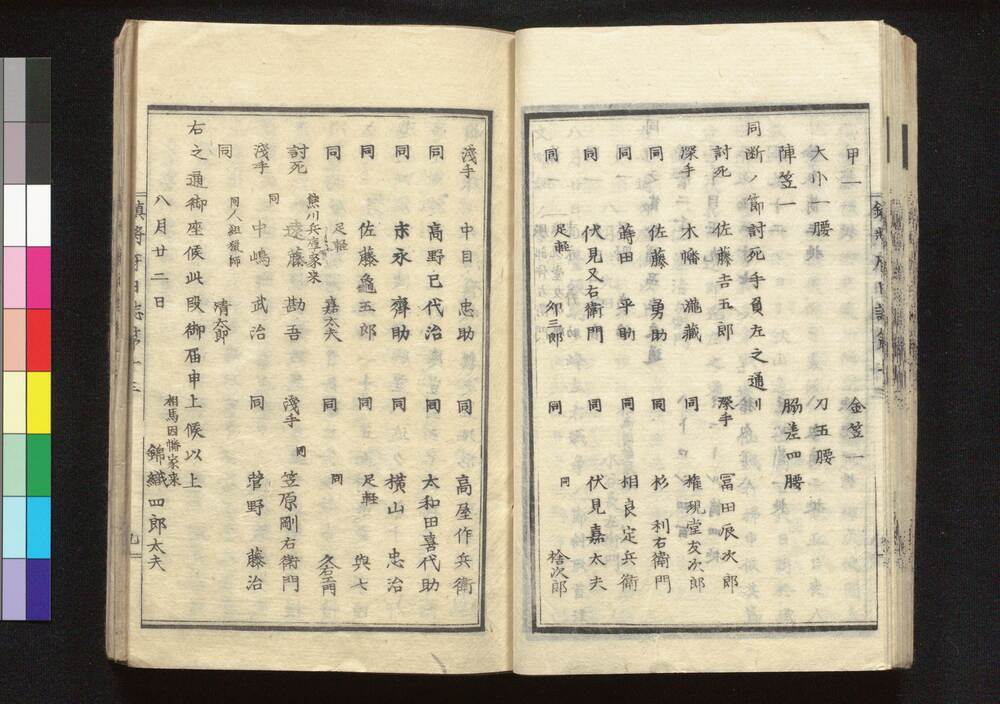 甲一　金笠一
大小一腰　刀五腰
陣笠一　脇差四腰
同断ノ節討死手負左之通リ
討死　佐藤吉五郎　深手　冨田辰次郎
深手　木幡　瀧藏　同　権現堂友次郎
同　佐藤　勇助　同　杉　利右衛門
同　蒔田　平助　同　相良定兵衛
同　伏見又右衛門　同　伏見嘉太夫
同　足軽　卯三郎　同　同　捨次郎
淺手　中目　忠助　同　高屋作兵衛
同　高野已代治　同　太和田喜代助
同　末永　齊助　同　横山　忠治
同　佐藤龜五郎　同　足軽　與七
同　足軽　嘉太夫　同　同　久右エ門
熊川兵庫家来
討死　遠藤　勘吾　淺手　同　笠原剛右衛門
淺手　同　中嶋　武治　同　菅野　藤治
同　同人組猟師　清太郎
右之通御座候此段御届申上候以上
相馬因幡家来
八月廿二日　錦織四郎太夫
鎮将府日誌第十三　九